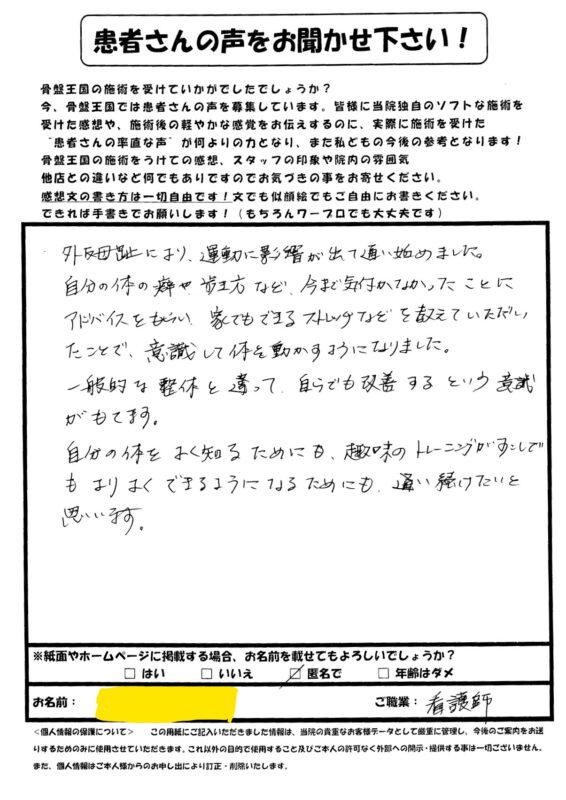 患者さんの声をお聞かせ下さい！
骨盤王国の施術を受けていかがでしたでしょうか？
今、骨盤王国では患者さんの声を募集しています。皆様に当院独自のソフトな施術を
受けた感想や、施術後の軽やかな感覚をお伝えするのに、実際に施術を受けた
"患者さんの率直な声"が何よりの力となり、また私どもの今後の参考となります！
骨盤王国の施術をうけての感想、スタッフの印象や院内の雰囲気
他店との違いなど何でもありですのでお気づきの事をお寄せください。
感想文の書き方は一切自由です！文でも似顔絵でもご自由にお書きください。
できれば手書きでお願いします！（もちろんワープロでも大丈夫です）
外反母趾により、運動に影響が出て通い始めました。
自分の体の癖や歩き方など、今まで気付かなかったことに
アドバイスをもらい、家でもできるストレッチなどを教えていただい
たことで、意識して体を動かすようになりました。
一般的な整体と違って、自らでも改善するという意識
がもてます。
自分の体をよく知るためにも、趣味のトレーニングがすこしで
もよりよくできるようになるためにも、通い続けたいと
思います。
※紙面やホームページに掲載する場合、お名前を載せてもよろしいでしょうか？
□ はい □ いいえ ☑ 匿名で □ 年齢はダメ
お名前： ご職業：看護師
＜個人情報の保護について＞ この用紙にご記入いただきました情報は、当院の貴重なお客様データとして厳重に管理し、今後のご案内をお送
りするためのみに使用させていただきます。これ以外の目的で使用すること及びご本人の許可なく外部への開示・提供する事は一切ございません。
また、個人情報はご本人様からのお申し出により訂正・削除いたします。